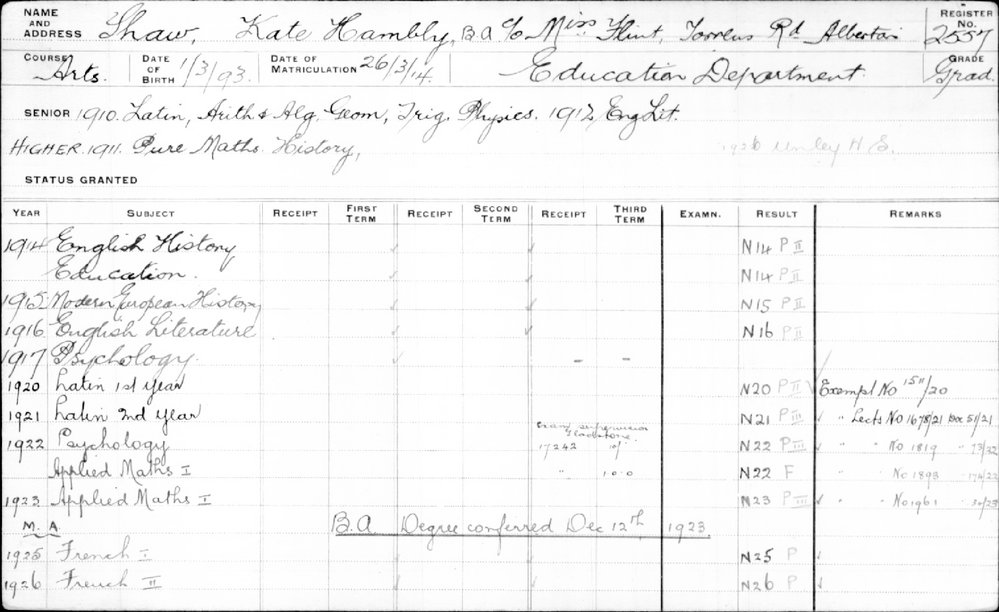 NAME AND ADDRESS Shaw, Kate Hambly, B.A. c/o Miss Flint, Torrens Rd Alberton REGISTER No. 2557
COURSE Arts. DATE OF BIRTH 1/3/93. DATE OF MATRICULATION 26/3/14. Education Department. GRADE Grad.
SENIOR 1910. Latin, Arith & Alg. Geom, Trig. Physics. 1912, Eng Lit.
HIGHER. 1911. Pure Maths. History, 1926 Unley H S.
STATUS GRANTED
YEAR SUBJECT RECEIPT FIRST TERM RECEIPT SECOND TERM RECEIPT THIRD TERM EXAMN. RESULT REMARKS
1914 English History ✓ ✓ N14 P II
Education. ✓ ✓ N14 P II
1915 Modern European History ✓ ✓ N15 P II
1916 English Literature ✓ ✓ N16 P II
1917 Psychology. ✓ – –
1920 Latin 1st year N20 P II ✓ Exempt No 1511/20
1921 Latin 2nd year N21 P III ✓ " Lects No 1678/21 51/21
Exam supervision Gladstone.
1922 Psychology 17242 N22 P III ✓ " " No 1819 " 73/22
Applied Maths I " 10.0 N22 F " " No 1893
1923 Applied Maths I N23 P III ✓ " " No 1961
M. A. B.A Degree conferred Dec 12th, 1923.
1925 French I N25 P ✓
1926 French II ✓ ✓ N26 P ✓